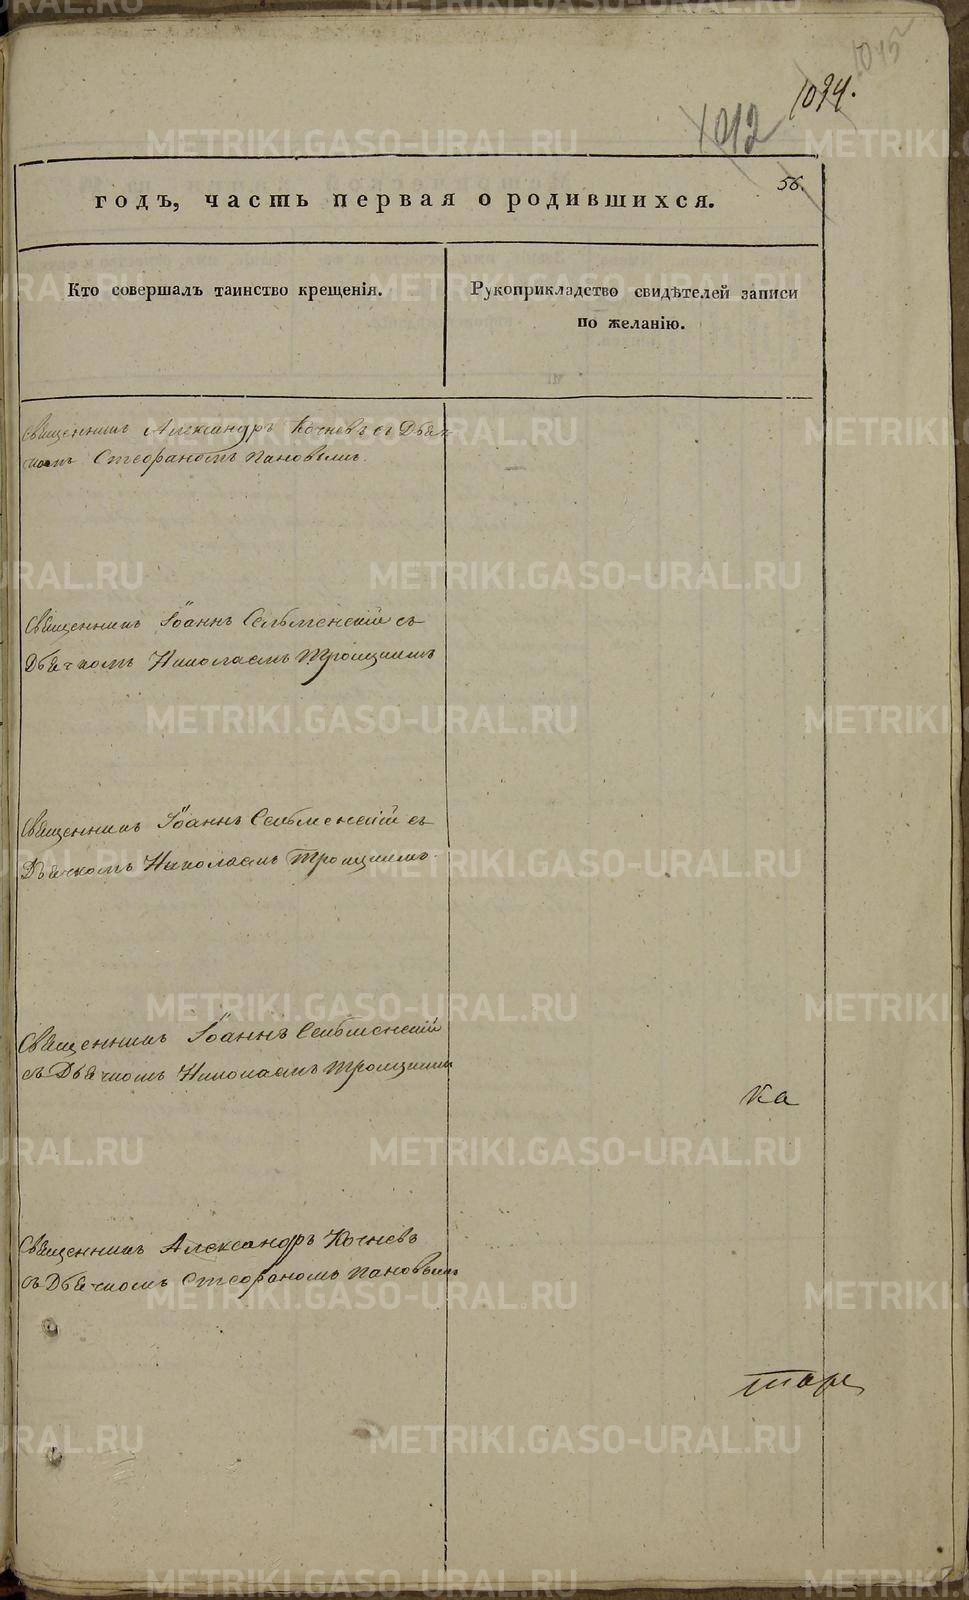 1045²
1034.
1012
56.
годъ, часть первая о родившихся.
Кто совершалъ таинство крещенія.
Рукоприкладство свидѣтелей записи
по желанію.
Священникъ Александръ Кочневъ съ Дьяч-
комъ Стефаномъ Пановымъ.
Священникъ Іоаннъ Сельменскій съ
Дьячкомъ Николаемъ Троицкимъ
Священникъ Іоаннъ Сельменскій съ
Дьячкомъ Николаемъ Троицкимъ.
Священникъ Іоаннъ Сельменскій
съ Дьячкомъ Николаемъ Троицкимъ
ка
Священникъ Александръ Кочневъ
съ Дьячкомъ Стефаномъ Пановымъ
METRIKI.GASO-URAL.RU